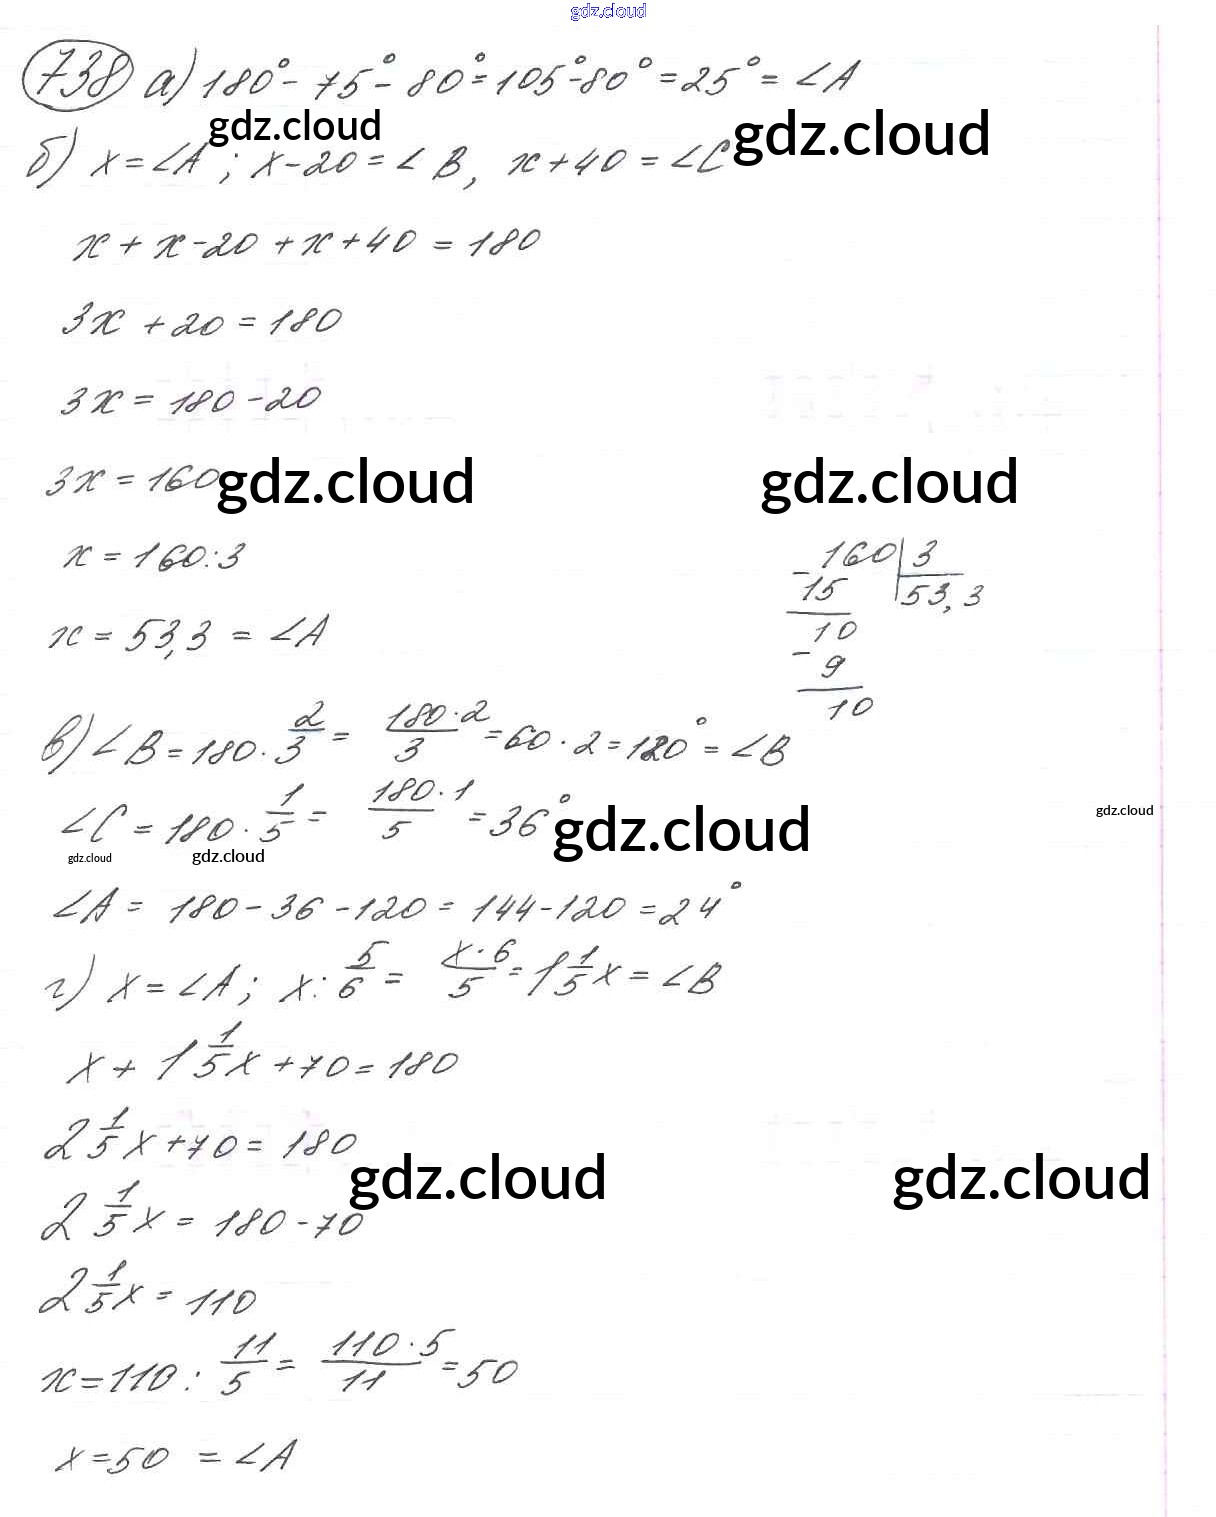 gdz.cloud
738 а) 180° - 75° - 80° = 105° - 80° = 25° = ∠A
gdz.cloud gdz.cloud
б) x = ∠A ; x - 20 = ∠B, x + 40 = ∠C
x + x - 20 + x + 40 = 180
3x + 20 = 180
3x = 180 - 20
3x = 160
gdz.cloud gdz.cloud
x = 160 : 3
x = 53,3 = ∠A
160 | 3
- 15 53,3
10
- 9
10
в) ∠B = 180 · 2/3 = 180·2/3 = 60 · 2 = 120° = ∠B
∠C = 180 · 1/5 = 180·1/5 = 36°
gdz.cloud gdz.cloud
gdz.cloud gdz.cloud
∠A = 180 - 36 - 120 = 144 - 120 = 24°
г) x = ∠A ; x : 5/6 = x·6/5 = 1 1/5 x = ∠B
x + 1 1/5 x + 70 = 180
2 1/5 x + 70 = 180
gdz.cloud gdz.cloud
2 1/5 x = 180 - 70
2 1/5 x = 110
x = 110 : 11/5 = 110·5/11 = 50
x = 50 = ∠A